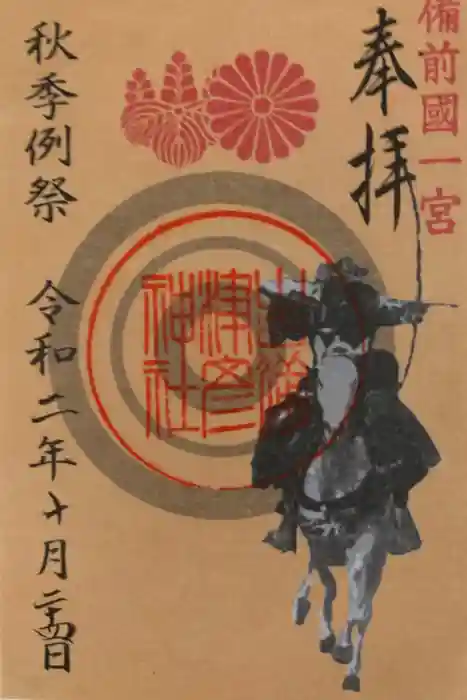 備前國一宮
奉拝
吉備
津彦
神社
秋季例祭 令和二年十月二十四日